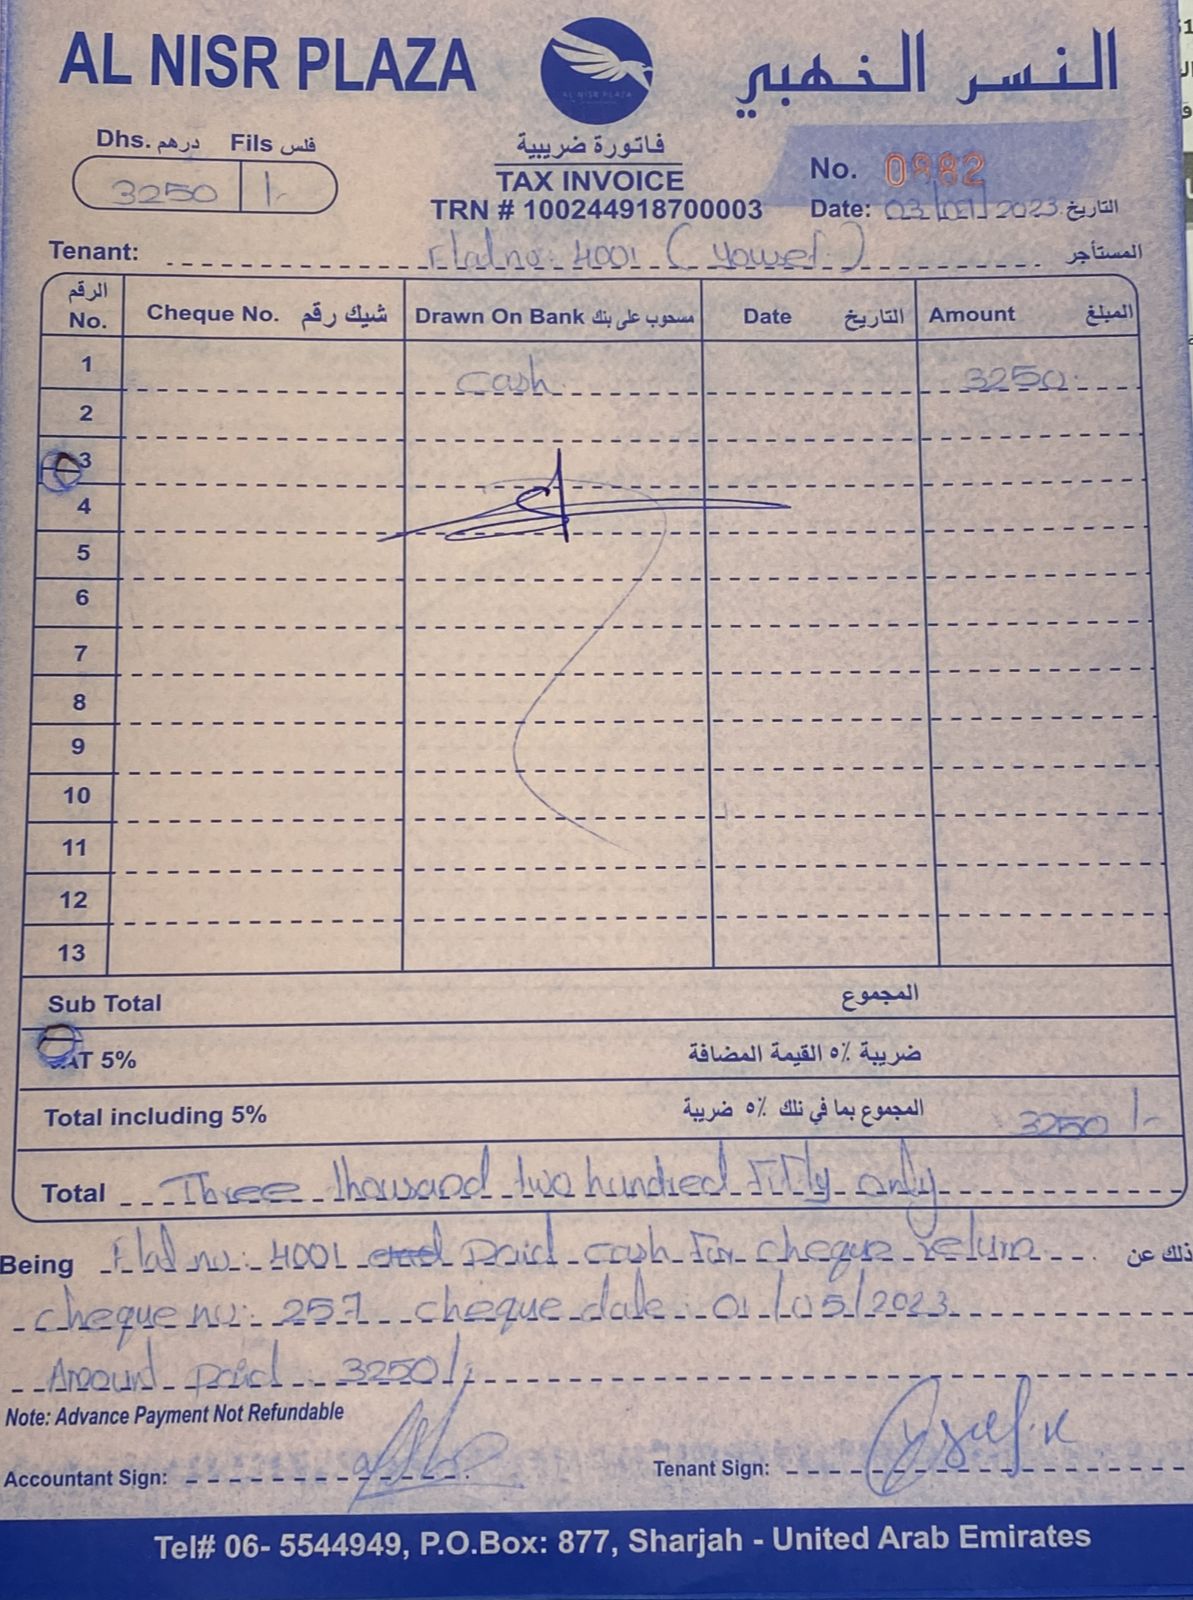 AL NISR PLAZA
النسر الذهبي
AL NISR PLAZA
Dhs. درهم Fils فلس
3250 /-
فاتورة ضريبية
TAX INVOICE
TRN # 100244918700003
No. 0982
Date: 2023 التاريخ
Tenant: Flat no: 4001 (Yousef) المستأجر
الرقم No. Cheque No. شيك رقم Drawn On Bank مسحوب على بنك Date التاريخ Amount المبلغ
1 cash 3250
2
3
4
5
6
7
8
9
10
11
12
13
Sub Total المجموع
AT 5% ضريبة ٥٪ القيمة المضافة
Total including 5% المجموع بما في ذلك ٥٪ ضريبة 3250 /-
Total Three thousand two hundred Fifty only
Being Flat no: 4001 paid cash For cheque return ذلك عن
cheque no: 257 cheque date: 01/05/2023
Amount paid: 3250/-
Note: Advance Payment Not Refundable
Accountant Sign: Tenant Sign:
Tel# 06- 5544949, P.O.Box: 877, Sharjah - United Arab Emirates